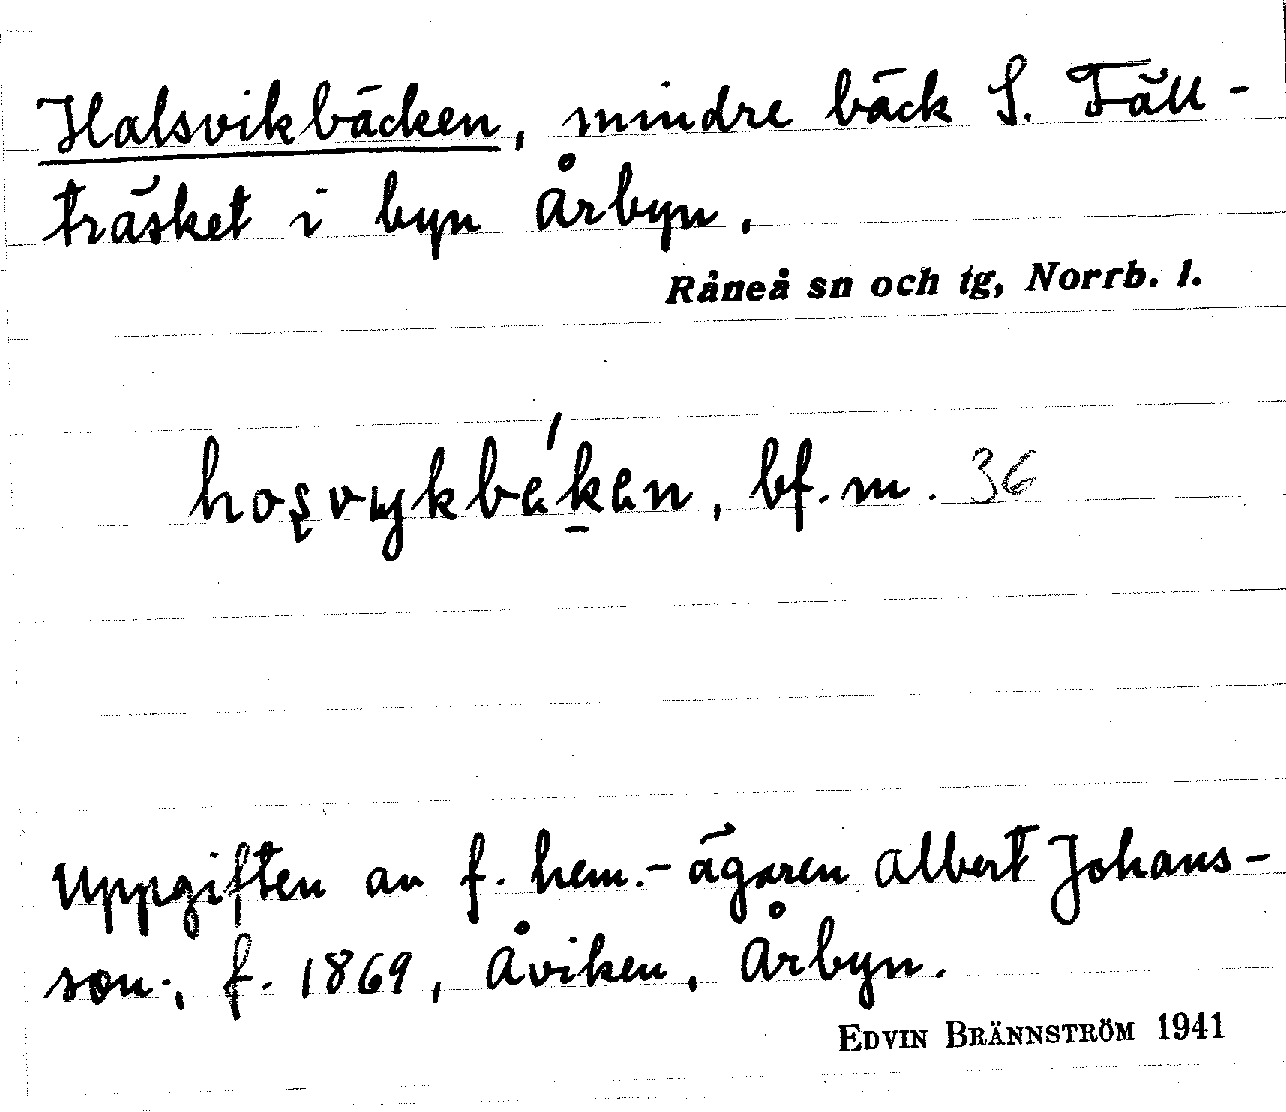 Halsvikbäcken, mindre bäck S. Fäll-
träsket i byn Årbyn.
Råneå sn och tg, Norrb. l.
bf. m. 36
Uppgiften av f. hem.-ägaren Albert Johans-
son, f. 1869, Åviken, Årbyn.
EDVIN BRÄNNSTRÖM 1941